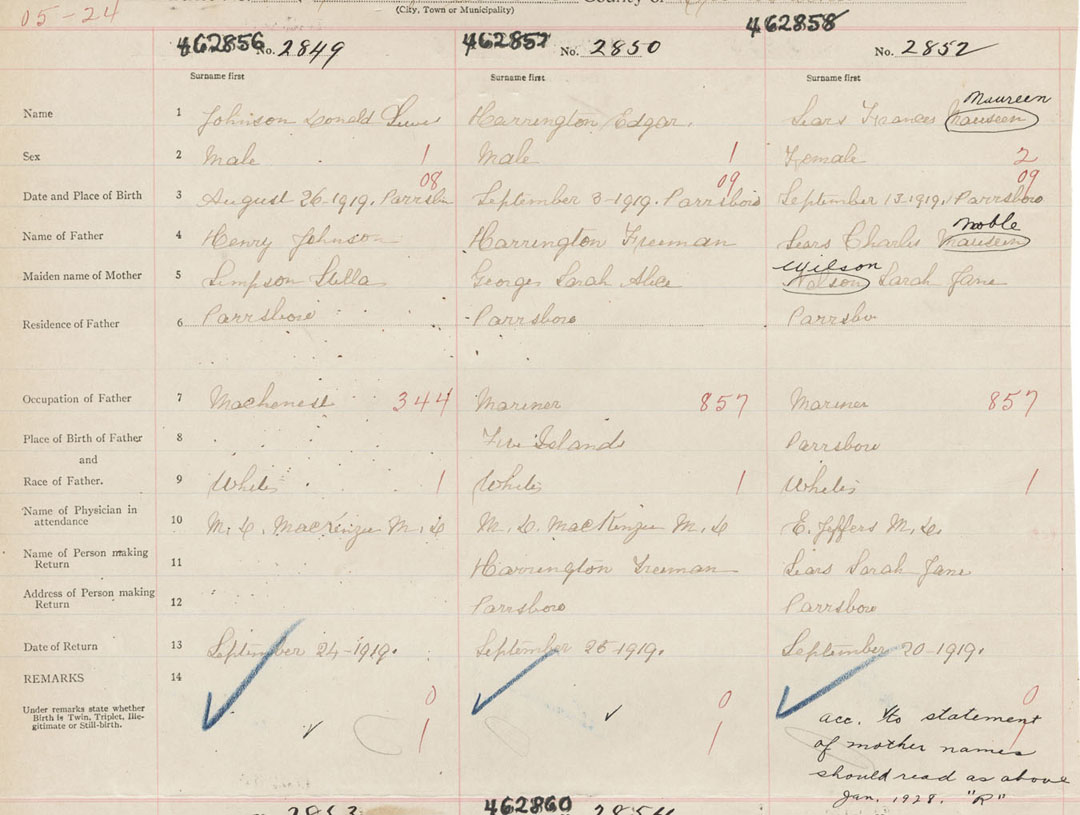 05-24
(City, Town or Municipality) County of
462856 No. 2849 462857 No. 2850 462858 No. 2852
Surname first Surname first Surname first
Maureen
Name 1 Johnson Donald Harrington Edgar. Sears Frances
Sex 2 Male 1 Male 1 Female 2
08 09 09
Date and Place of Birth 3 August 26-1919. Parrsboro September 3-1919. Parrsboro September 13-1919. Parrsboro
Noble
Name of Father 4 Henry Johnson Harrington Freeman Sears Charles
Wilson
Maiden name of Mother 5 Simpson Stella George Sarah Alice Nelson Sarah Jane
Residence of Father 6 Parrsboro Parrsboro Parrsboro
Occupation of Father 7 344 Mariner 857 Mariner 857
Place of Birth of Father 8 Five Islands Parrsboro
and
Race of Father. 9 White 1 White 1 White 1
Name of Physician in
attendance 10 M. D. MacKenzie M.D M. D. MacKenzie M.D E. Jeffers M.D.
Name of Person making
Return 11 Harrington Freeman Sears Sarah Jane
Address of Person making
Return 12 Parrsboro Parrsboro
Date of Return 13 September 24-1919. September 25-1919. September 20-1919.
REMARKS 14
0 0 0
Under remarks state whether
Birth is Twin, Triplet, Ille-
gitimate or Still-birth.
1 1 1
acc. to statement
of mother names
should read as above
Jan. 1928. "R"
462860